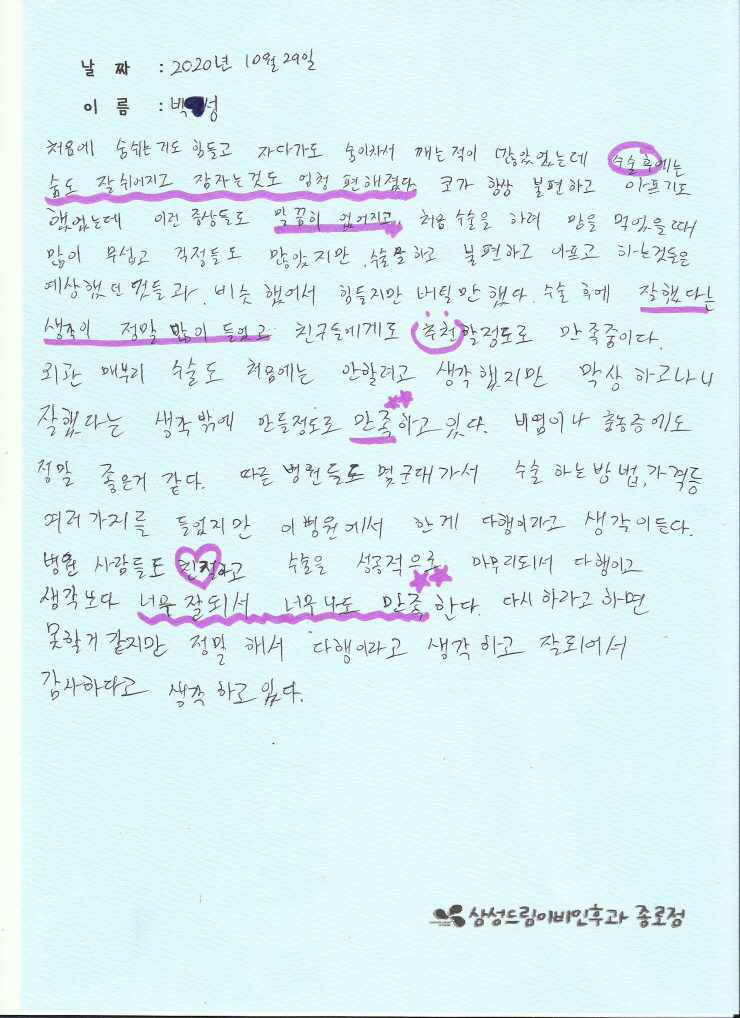 날 짜 : 2020년 10월 29일
이 름 : 박 성
처음에 숨쉬는거도 힘들고 자다가도 숨이차서 깨는적이 많았었는데 수술후에는
숨도 잘쉬어지고 잠자는것도 엄청 편해졌다 코가 항상 불편하고 아프기도
했었는데 이런 증상들도 말끔히 없어지고, 처음 수술을 하려 맘을 먹었을때
많이 무섭고 걱정들도 많았지만, 수술을하고 불편하고 아프고 하는것들은
예상했던 것들과 비슷했어서 힘들지만 버틸만했다. 수술 후에 잘했다는
생각이 정말 많이 들었고 친구들에게도 추천할정도로 만족중이다.
외관 매부리 수술도 처음에는 안할려고 생각했지만 막상 하고나니
잘했다는 생각밖에 안들정도로 만족하고 있다. 비염이나 축농증에도
정말 좋은거 같다. 따른 병원들도 몇군대가서 수술 하는방법, 가격등
여러가지를 들었지만 이병원에서 한게 다행이라고 생각이든다.
병원 사람들도 친절하고 수술을 성공적으로 마무리되서 다행이고
생각보다 너무 잘되서 너무나도 만족한다. 다시 하라고 하면
못할거 같지만 정말 해서 다행이라고 생각하고 잘되어서
감사하다고 생각하고 있다.
삼성드림이비인후과 종로점